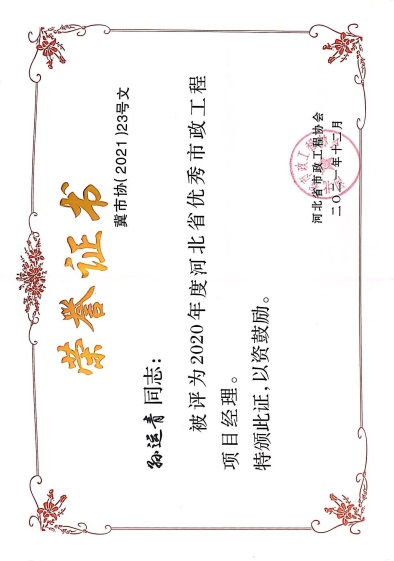 荣誉证书
冀市协(2021)23号文
孙运青 同志：
被评为2020年度河北省优秀市政工程
项目经理。
特颁此证，以资鼓励。
河北省市政工程协会
二〇二一年十二月